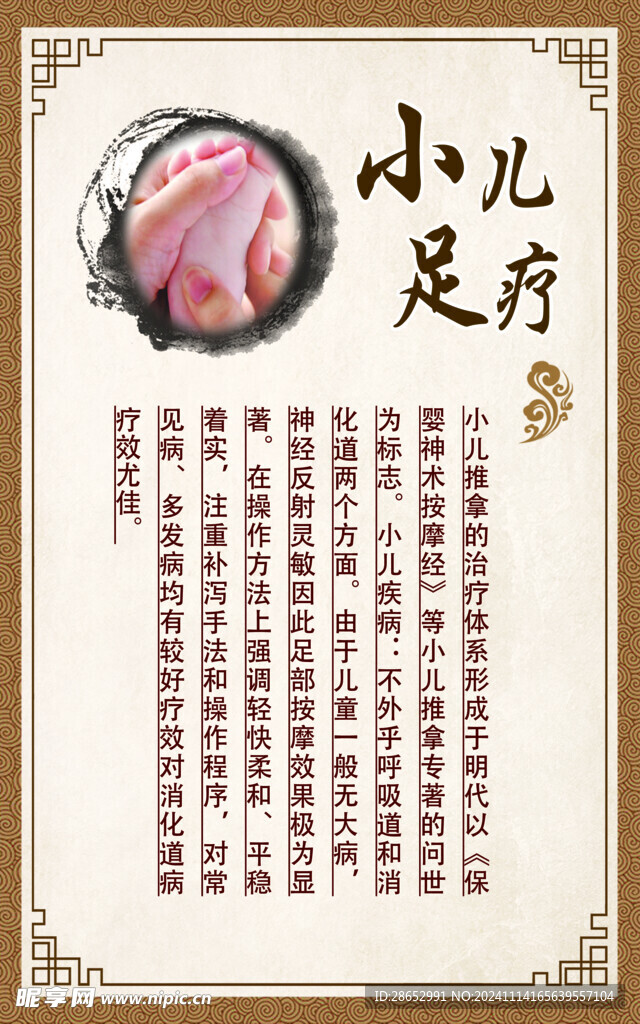 小儿
足疗
小儿推拿的治疗体系形成于明代以《保
婴神术按摩经》等小儿推拿专著的问世
为标志。小儿疾病：不外乎呼吸道和消
化道两个方面。由于儿童一般无大病，
神经反射灵敏因此足部按摩效果极为显
著。在操作方法上强调轻快柔和、平稳
着实，注重补泻手法和操作程序，对常
见病、多发病均有较好疗效对消化道病
疗效尤佳。
昵享网 www.nipic.cn
ID:28652991 NO:20241114165639557104